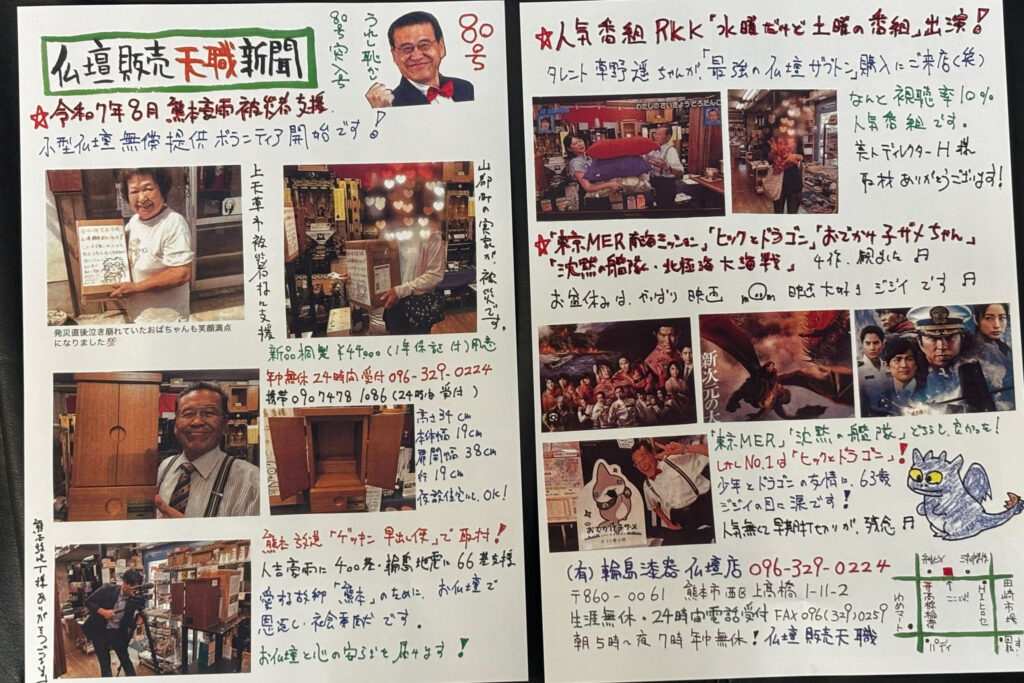 仏壇販売天職新聞
うれし恥かし
80号突入！
80号
☆令和7年8月 熊本豪雨被災者支援
小型仏壇無償提供ボランティア開始です！
上天草市被災者様に支援
山都町の実家が、被災です。
発災直後泣き崩れていたおばちゃんも笑顔満点
になりました
新品桐製 ¥44,000(1年保証付)用意
年中無休24時間受付 096-329-0224
携帯 090 7478 1086 (24時間受付)
高さ34cm
本体幅19cm
扉開幅38cm
行19cm
仮設住宅にも、OK!
熊本放送「ゲツキン早出し便」で取材！
人吉豪雨に400基・輪島地震に66基支援
愛する故郷「熊本」のために、お仏壇で
恩返し・社会貢献です。
お仏壇と心の安らぎを届けます！
☆人気番組RKK「水曜だけど土曜の番組」出演！
タレント草野遥ちゃんが「最強の仏壇ザブトン」購入にご来店(笑)
わたしのさいきょうどろだんご
なんと視聴率10%
人気番組です。
美人ディレクターH様
取材ありがとうございます！
☆「東京MER 南海ミッション」「ヒックとドラゴン」「おでかけ子ザメちゃん」
「沈黙の艦隊・北極海大海戦」 4作、観ました♬
お盆休みは、やっぱり映画 映画大好きジジイです♬
新次元の
おでかけ子ザメ
「東京MER」「沈黙の艦隊」どちらも、良かった！
しかしNo.1は「ヒックとドラゴン」！
少年とドラゴンの友情に、63歳
ジジイの目に涙です！
人気無くて早期打ち切りが、残念♬
(有)輪島漆器仏壇店 096-329-0224
〒860-0061 熊本市西区上高橋1-11-2
生涯無休・24時間電話受付 FAX 096(329)0259
朝5時〜夜7時 年中無休！ 仏壇販売天職
ココ
田崎市場